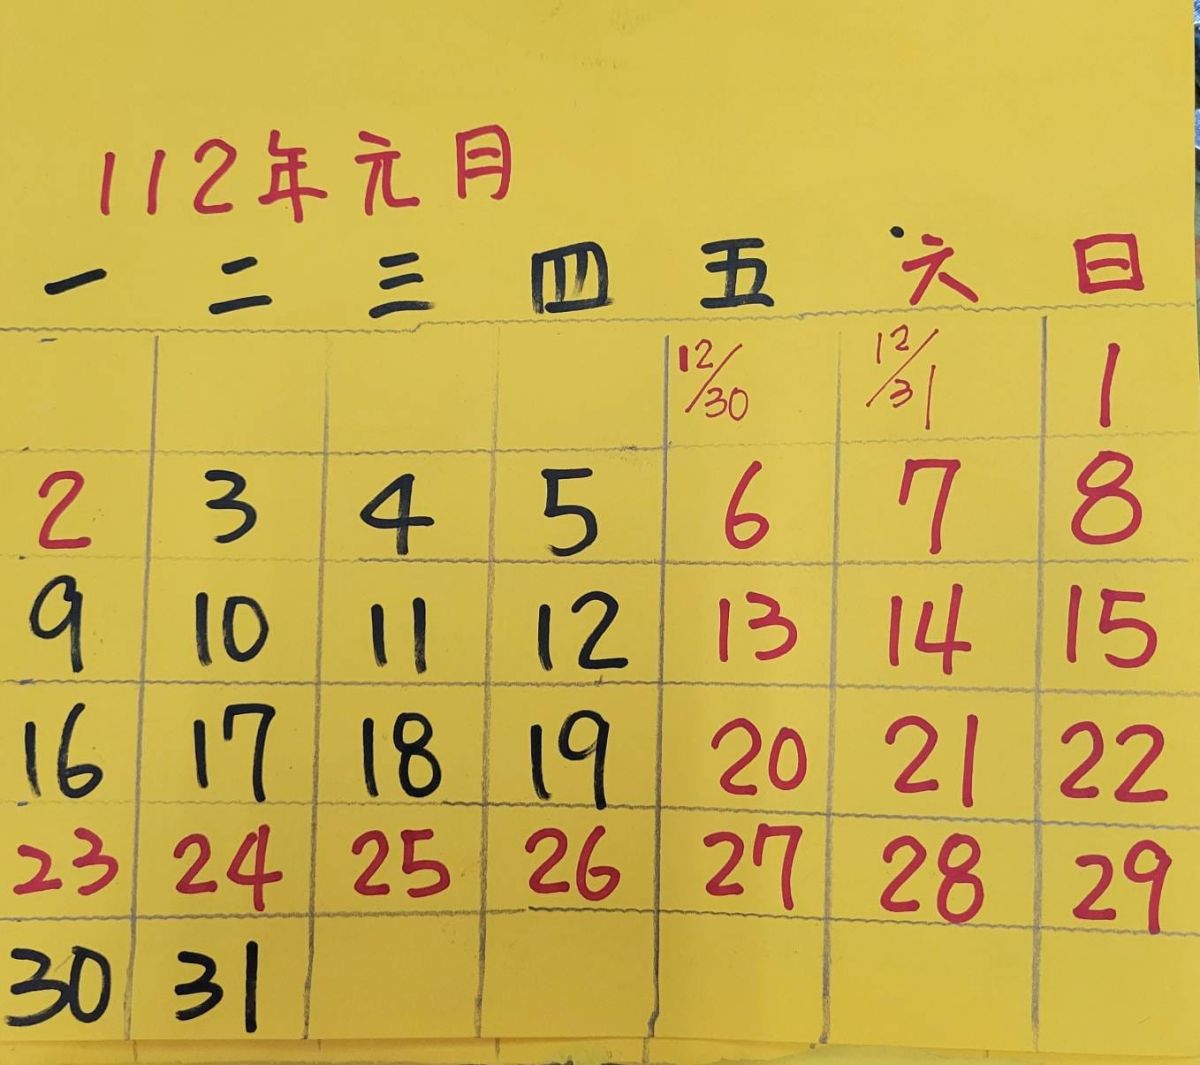 112年元月
一 二 三 四 五 六 日
12/30 12/31 1
2 3 4 5 6 7 8
9 10 11 12 13 14 15
16 17 18 19 20 21 22
23 24 25 26 27 28 29
30 31